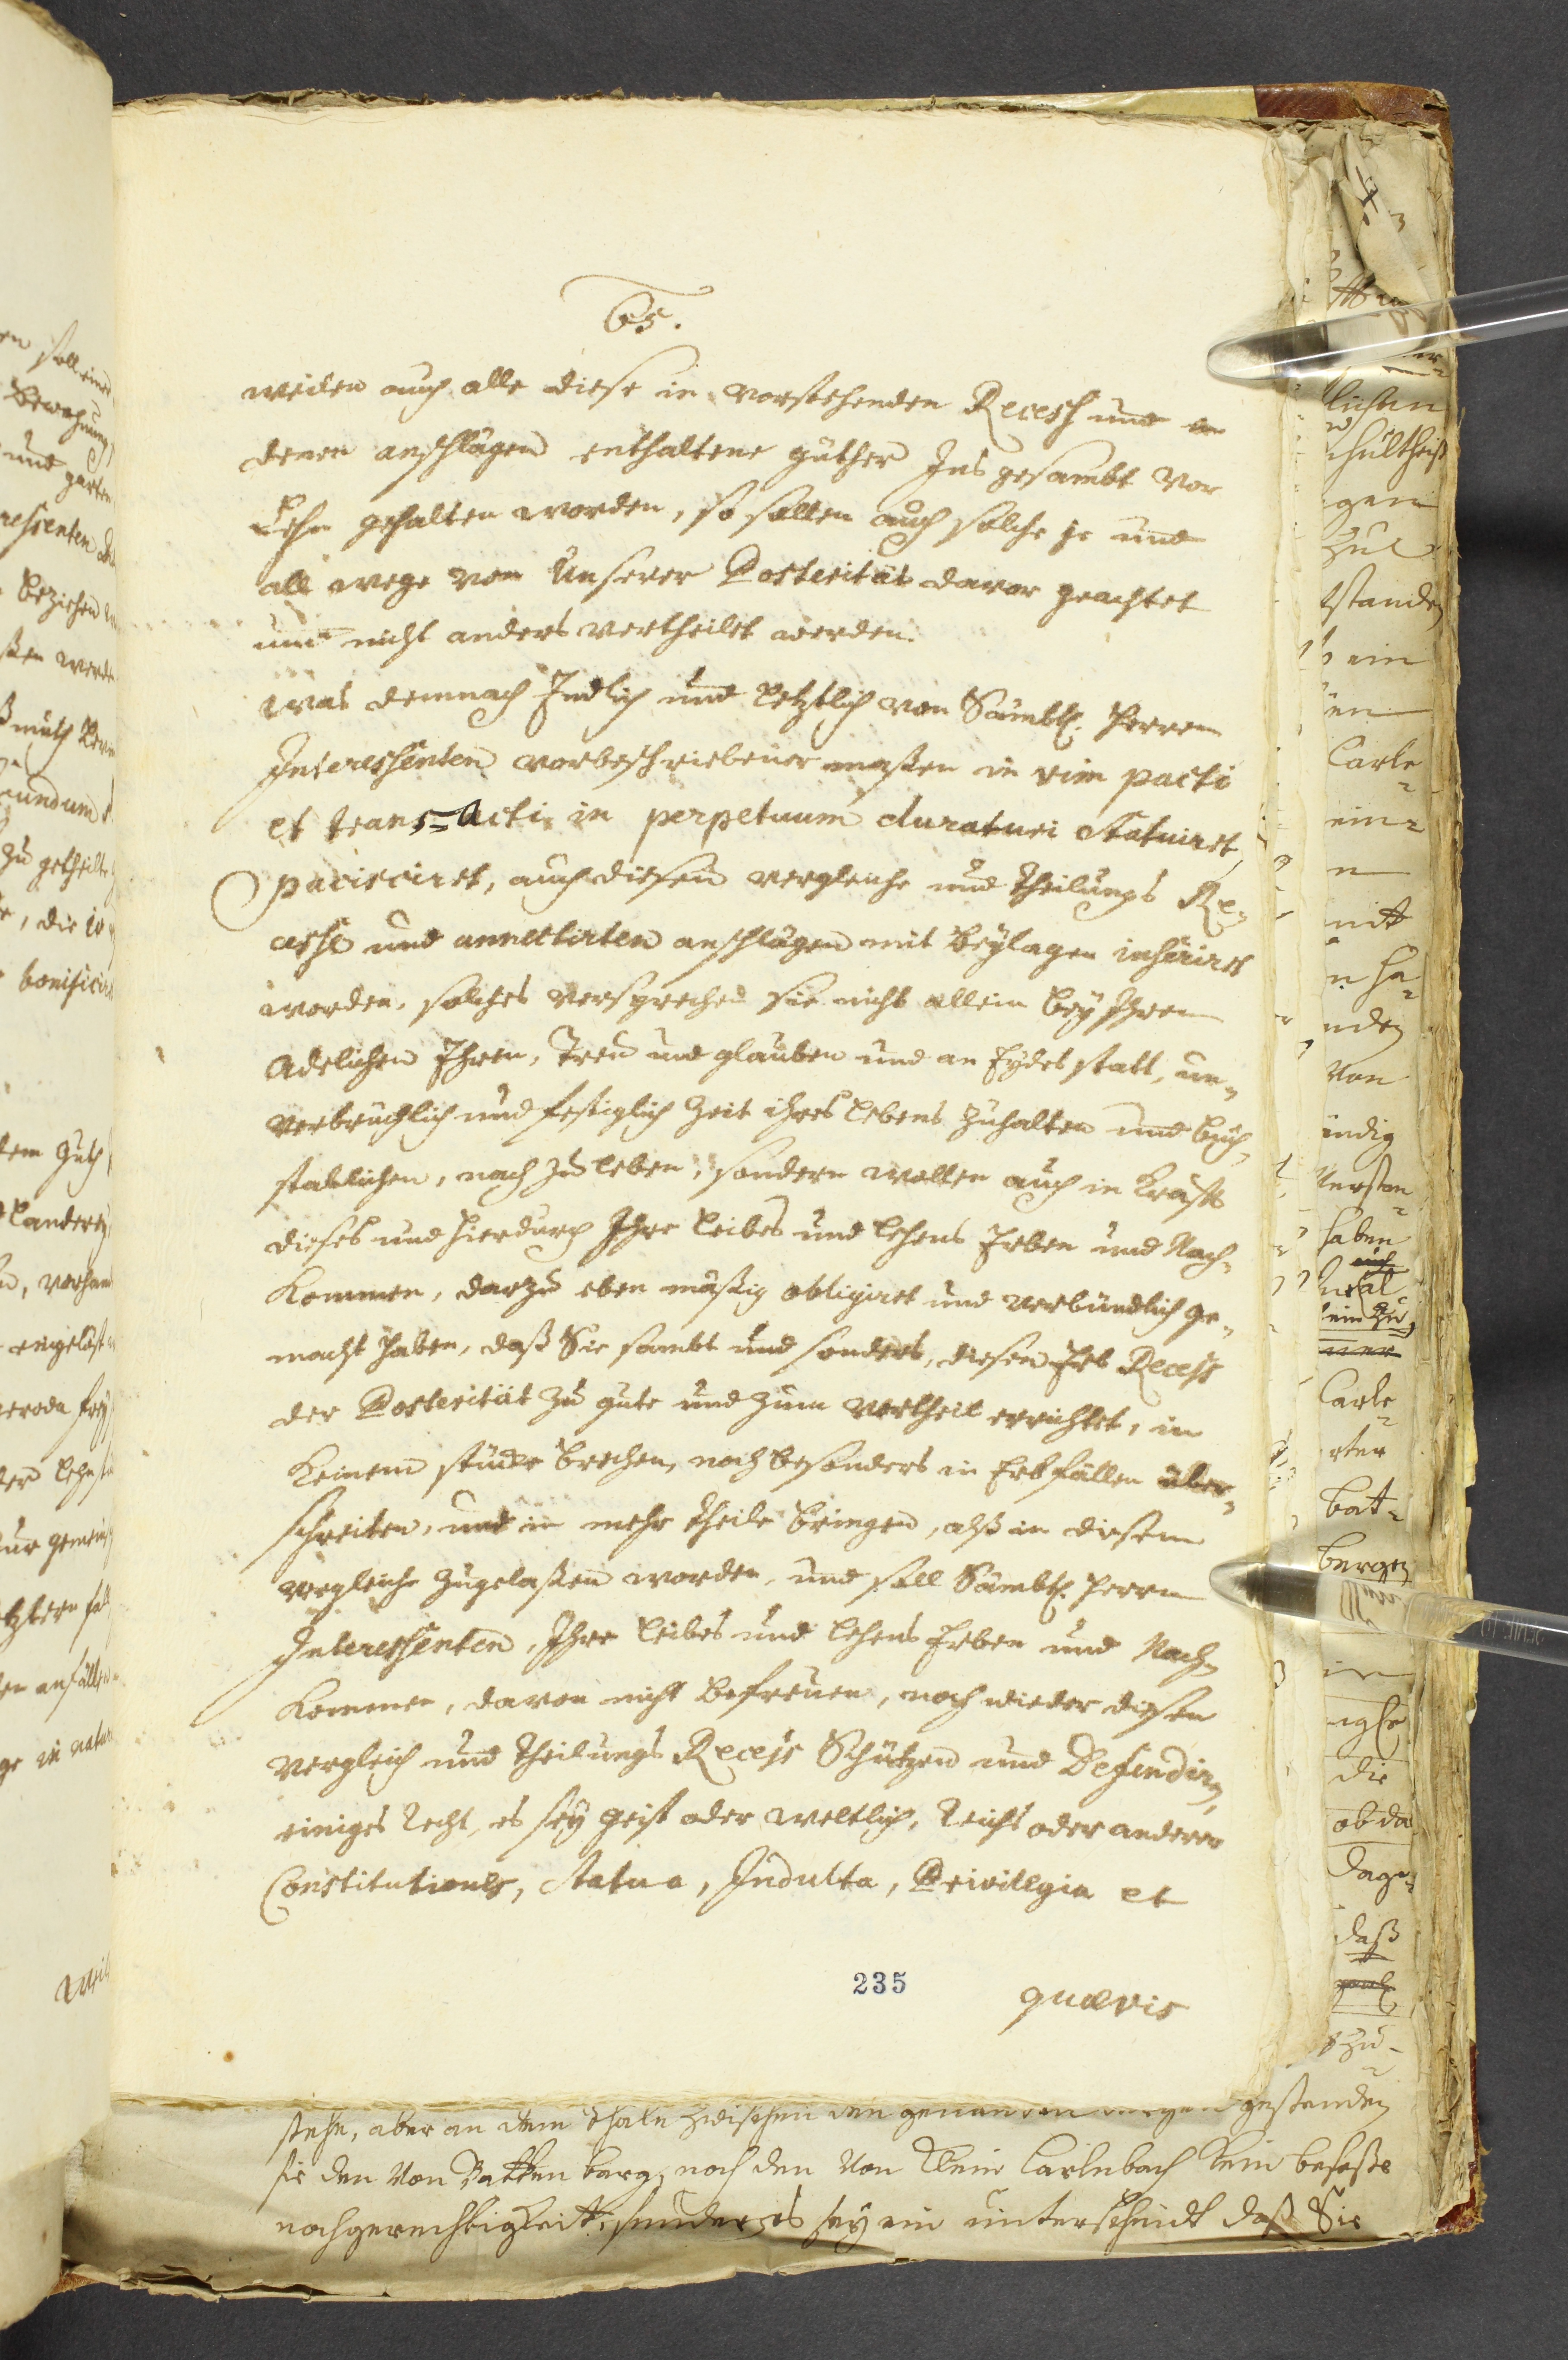 65.
weilen auch alle diese in vorstehenden Recess und in
denen anschlägen enthaltene güther Ins gesambt vor
Lehn gehalten worden, so sollen auch solche je und
all wege von Unserer Posterität davor geachtet
und nicht anders vertheilet werden.
Was demnach Endlich und letztlich von Sämbtl. Herren
Interessenten vorbeschriebener maßen in vim pacti
et trans=Acti in perpetuum duraturi Statuiret,
pacisciret, auch diesem vergleiche und theilungs Re-
cesse und annectirten anschlägen mit beylagen inseriret
worden, solches versprechen sie nicht allein bey Ihren
Adelichen Ehren, Treu und glauben und an Eydes statt, un-
verbrüchlich und festiglich Zeit ihres lebens zuhalten und buch-
stablichen, nach zu leben, sondern wollen auch in krafft
dieses und hierdurch Ihre leibes und lehens Erben und Nach-
kommen, darzu eben mäßig obligiret und verbündlich ge-
macht haben, daß Sie sambt und sonders, diesen Erb Recess
der Posterität zu gute und zum vortheil errichtet, in
keinem stücke brechen, noch besonders in Erbfällen über-
schreiten, und in mehr theile bringen, alß in diesem
vergleiche zugelaßen worden, und soll Sämbtl. Herren
Interessenten, Ihre leibes und lehens Erben und Nach-
kommen, davon nicht befreuen, noch wieder diesen
vergleich und theilungs Recess Schützen und Defendiren,
einiges Recht, es sey geist oder weltlich, Reichs oder andere
Constitutiones, Statua, Indulta, Privilegia et
235
quævis
stehe, aber an dem thale zwischen den genanden bergen gestanden
sie den Von Batten berg, noch den Von Klein Carlebach kein
nachgerechtigkeit, sondern es sey ein unterscheidt daß Sie